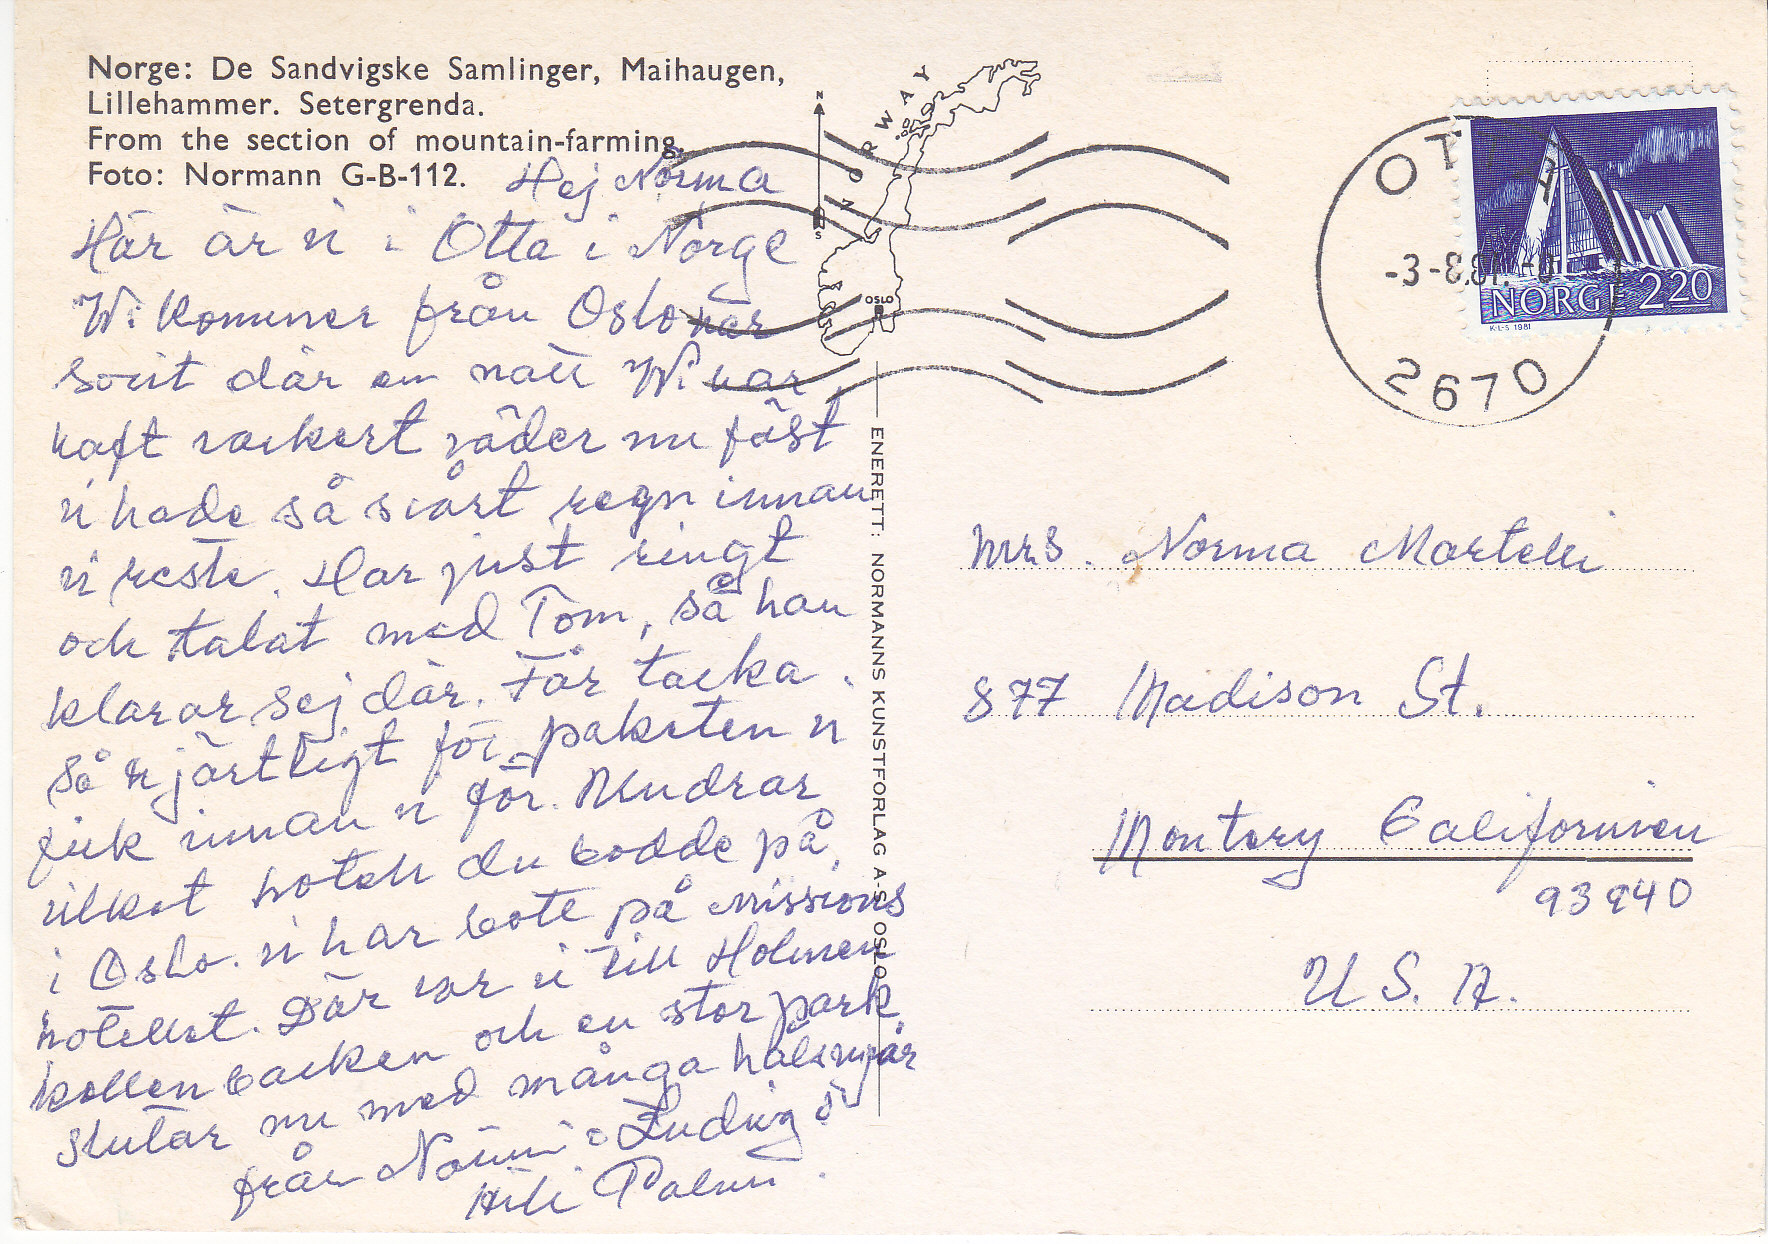 Norge: De Sandvigske Samlinger, Maihaugen,
Lillehammer. Setergrenda.
From the section of mountain-farming.
Foto: Normann G-B-112.
Hej Norma
Här är vi i Otta i Norge
Wi kommer från Oslo har
sovit där en natt Wi har
haft vackert väder nu fast
vi hade så svårt regn innan
vi reste. Har just ringt
och talat med Tom, så han
klarar sej där. Får tacka
så hjärtligt för paketen vi
fick innan vi för. Undrar
vilket hotell du bodde på,
i Oslo. vi har bott på missions
hotellet. Där var vi till Holmen
kollen backen och en stor park
slutar nu med många hälsningar
från Nanni o Ludvig o
Palm
NORWAY
N
S
OSLO
ENERETT: NORMANNS KUNSTFORLAG A-S OSLO
OTTA
-3-8.81
2670
NORGE 220
K-L-S 1981
Mrs. Norma Martelli
877 Madison St.
Montery Californien
93940
U.S.A.